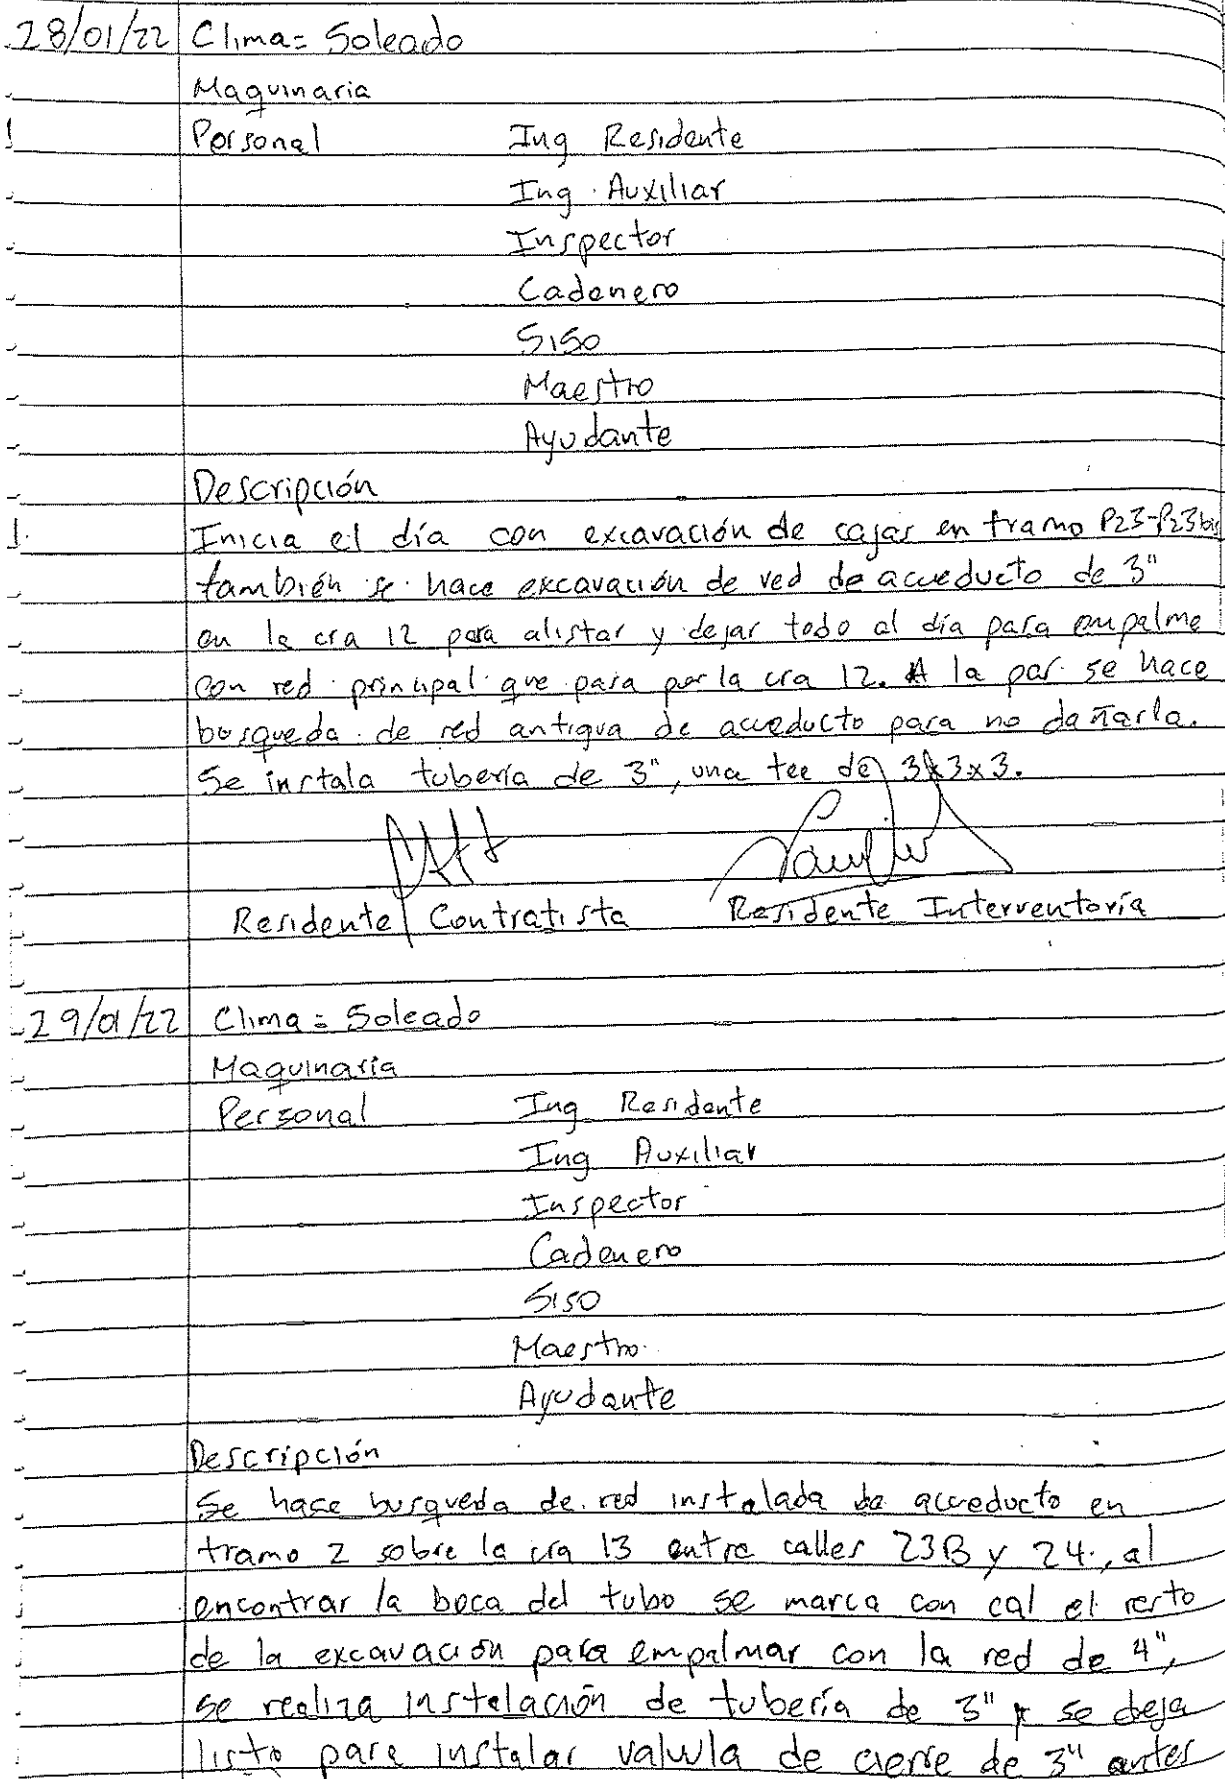 28/01/22 Clima = Soleado
Maquinaria
Personal Ing Residente
Ing. Auxiliar
Inspector
Cadenero
Siso
Maestro
Ayudante
Descripción
Inicia el día con excavación de cajas en tramo P23-P23bis
también se hace excavación de red de acueducto de 3"
en la cra 12 para alistar y dejar todo al día para empalme
con red principal que pasa por la cra 12. A la par se hace
busqueda de red antigua de acueducto para no dañarla.
Se instala tubería de 3", una tee de 3x3x3.
Residente Contratista Residente Interventoría
29/01/22 Clima = Soleado
Maquinaria
Personal Ing Residente
Ing Auxiliar
Inspector
Cadenero
Siso
Maestro
Ayudante
Descripción
Se hace busqueda de red instalada de acueducto en
tramo 2 sobre la cra 13 entre calles 23B y 24, al
encontrar la boca del tubo se marca con cal el resto
de la excavación para empalmar con la red de 4",
se realiza instalación de tubería de 3" y se deja
listo para instalar valvula de cierre de 3" antes